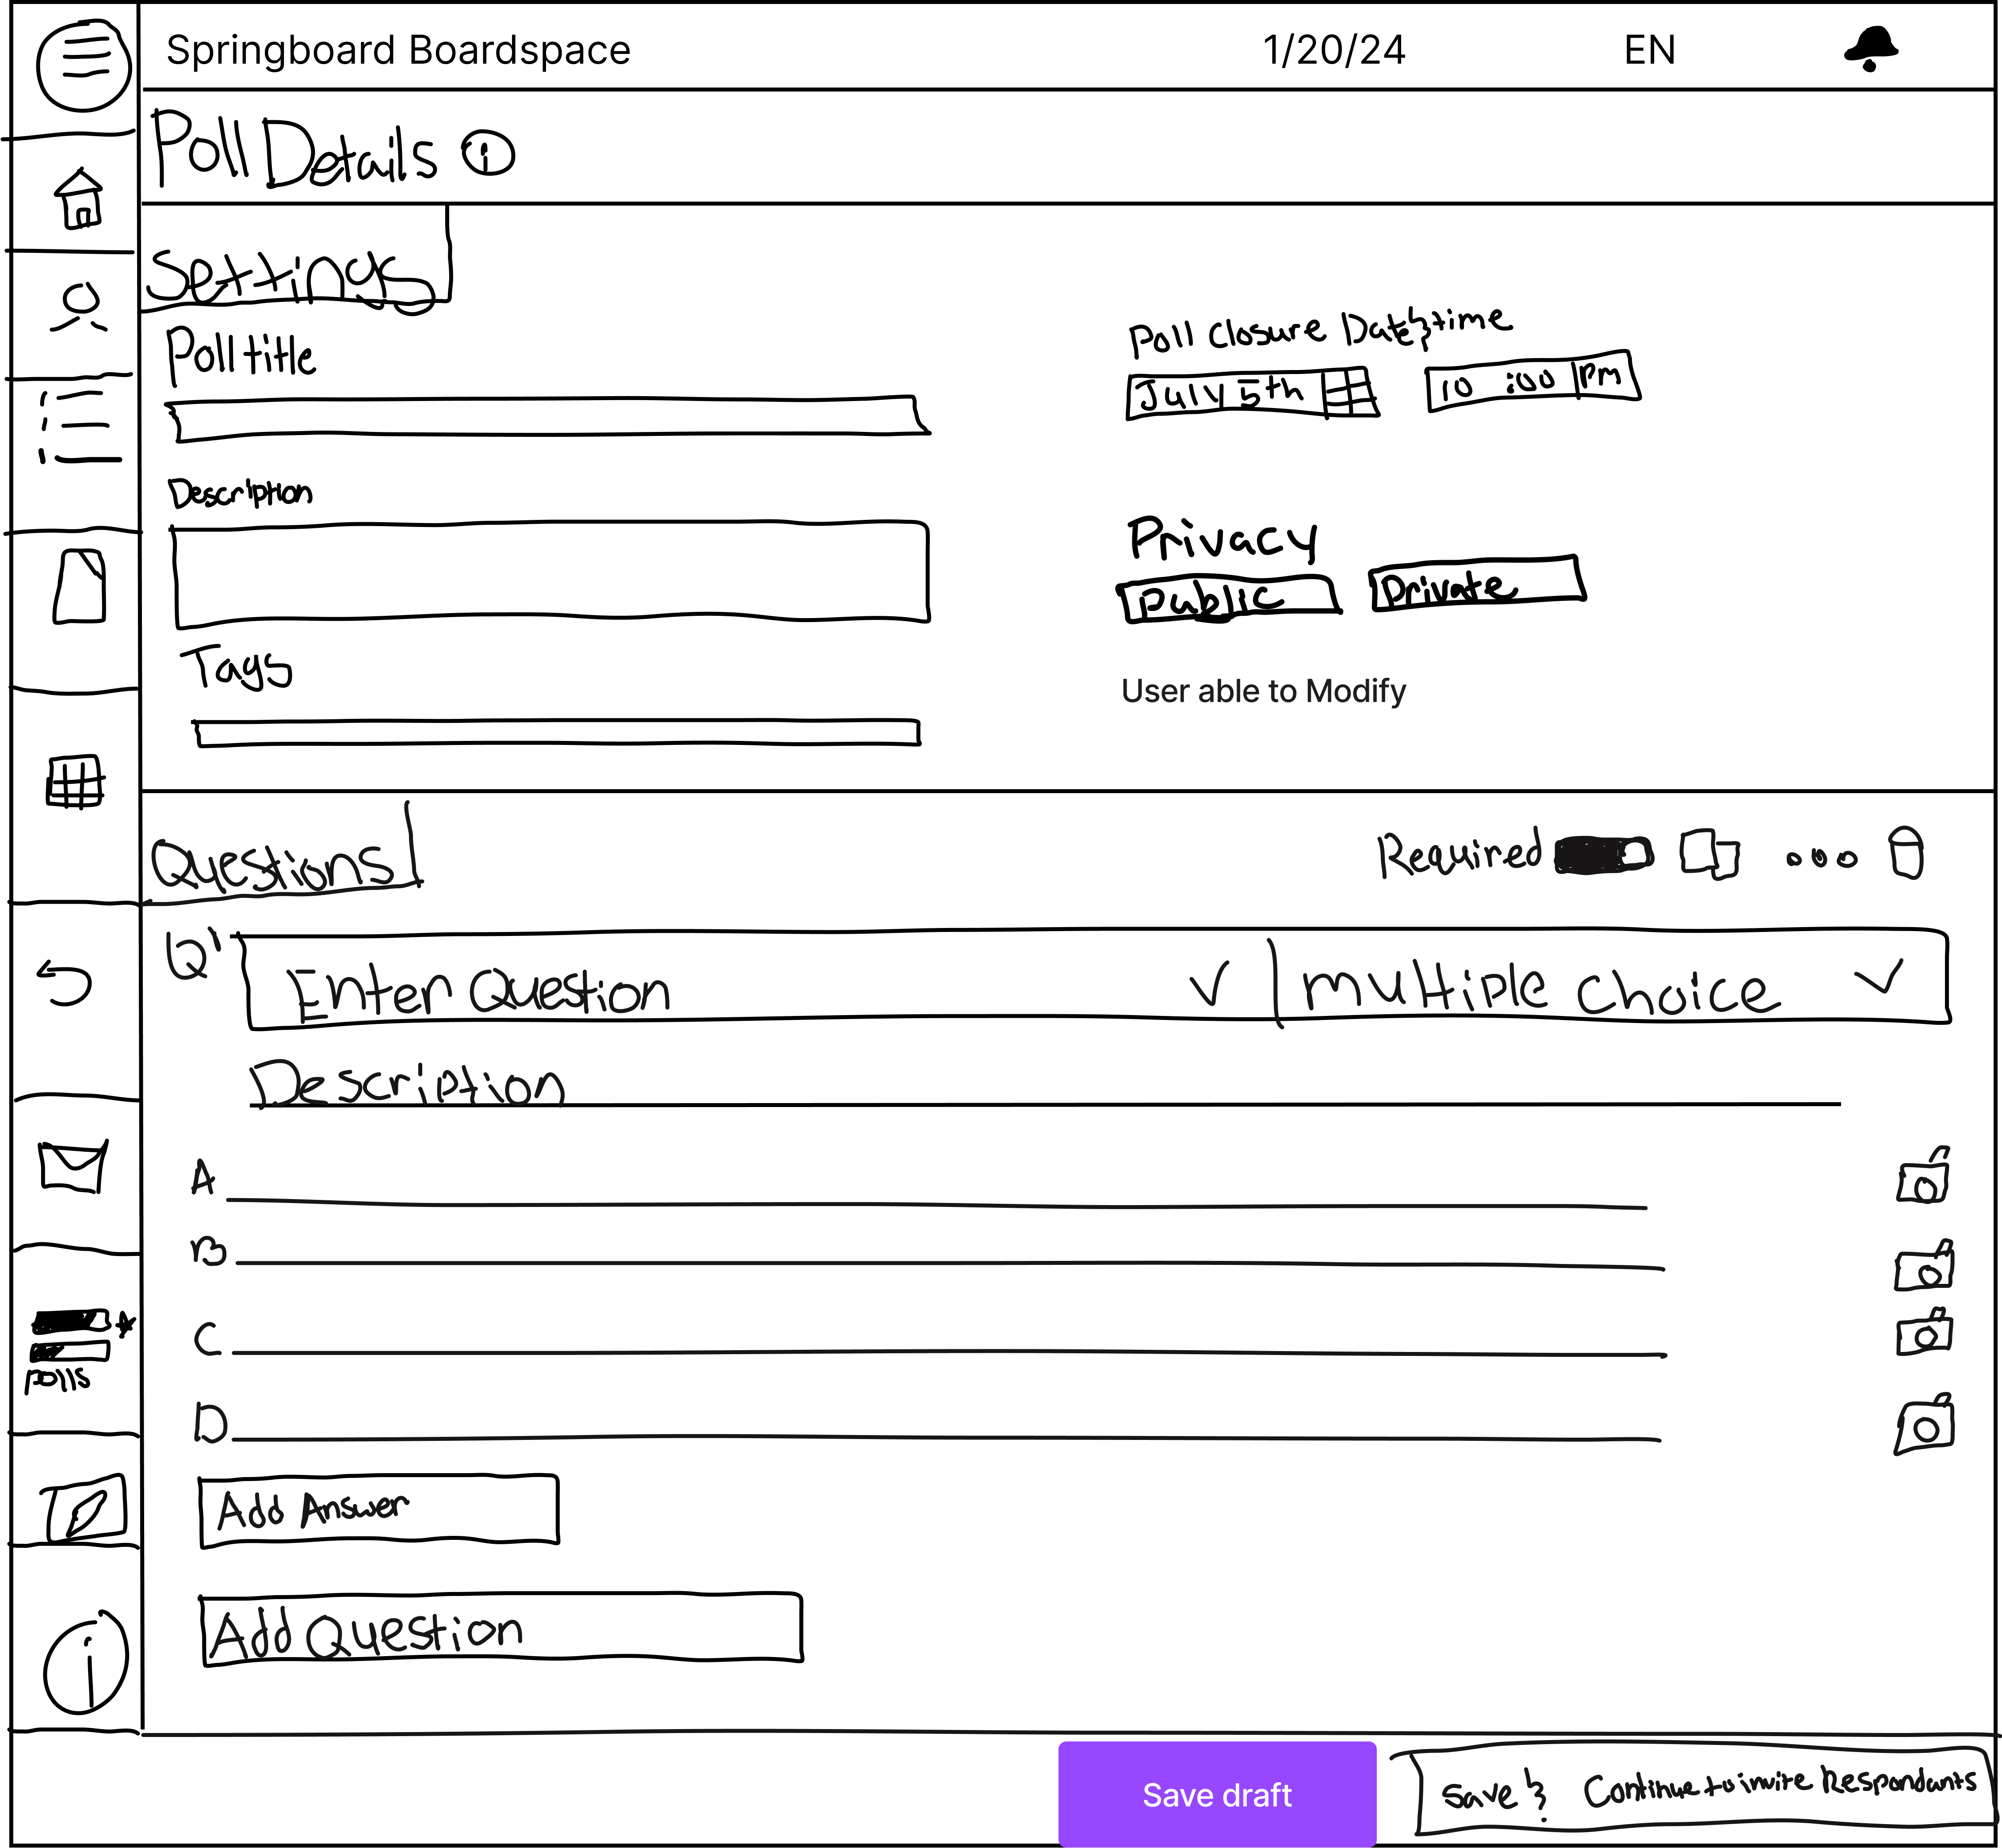 Springboard Boardspace 1/20/24 EN
Poll Details i
Settings
Poll title
Poll Closure Date & time
July 5th 10 :00 PM
Description
Privacy
Public Private
Tags
User able to Modify
Questions
Required
Q1
Enter Question Multiple Choice
Description
A
B
C
D
polls
Add Answer
Add Question
i
Save draft
Save & Continue to invite Respondants